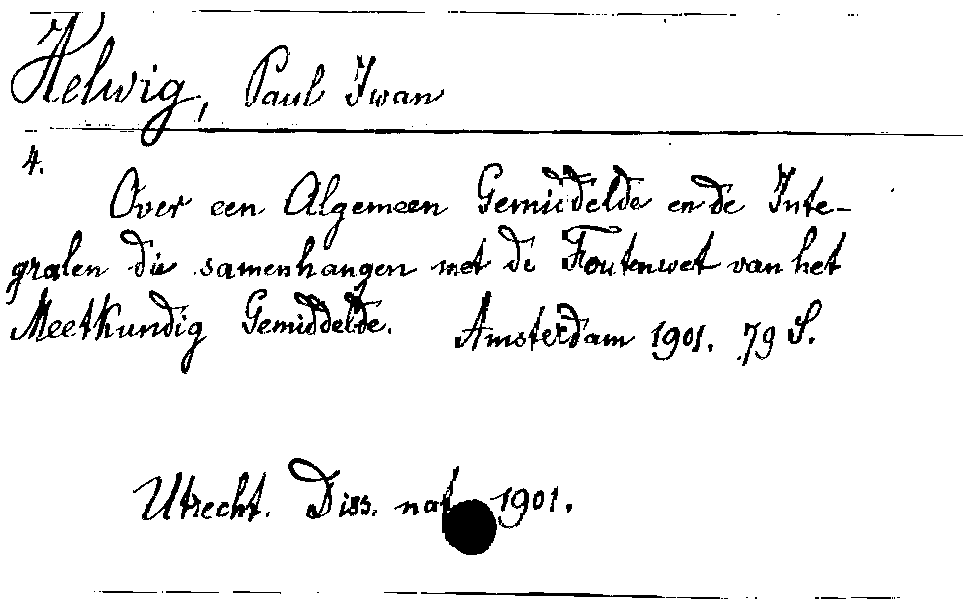 Helwig, Paul Iwan
4.
Over een Algemeen Gemiddelde en de Inte-
gralen die samenhangen met de Foutenwet van het
Meetkundig Gemiddelde. Amsterdam 1901. 79 S.
Utrecht. Diss. nat 1901.